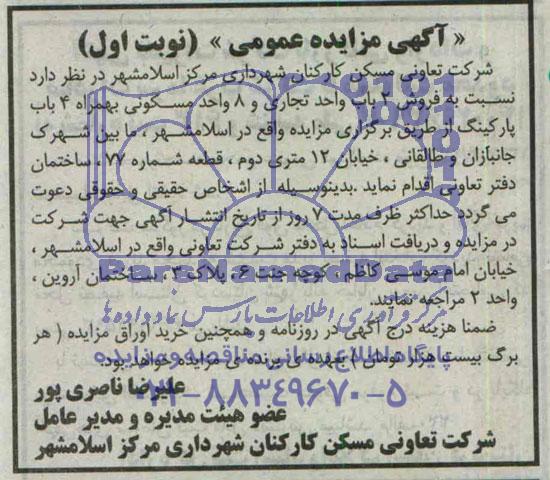 « آگهی مزایده عمومی » (نوبت اول)
شرکت تعاونی مسکن کارکنان شهرداری مرکز اسلامشهر در نظر دارد
نسبت به فروش ۲ باب واحد تجاری و ۸ واحد مسکونی بهمراه ۴ باب
پارکینگ از طریق برگزاری مزایده واقع در اسلامشهر ، ما بین شهرک
جانبازان و طالقانی ، خیابان ۱۲ متری دوم ، قطعه شماره ۷۷ ، ساختمان
دفتر تعاونی اقدام نماید .بدینوسیله از اشخاص حقیقی و حقوقی دعوت
می گردد حداکثر ظرف مدت ۷ روز از تاریخ انتشار آگهی جهت شرکت
در مزایده و دریافت اسناد به دفتر شرکت تعاونی واقع در اسلامشهر ،
خیابان امام موسی کاظم ، کوچه جنت ۶ ، پلاک ۳ ، ساختمان آروین ،
واحد ۲ مراجعه نمایند.
ضمنا هزینه درج آگهی در روزنامه و همچنین خرید اوراق مزایده ( هر
برگ بیست هزار تومان ) بعهده ی برنده ی مزایده خواهد بود.
علیرضا ناصری پور
عضو هیئت مدیره و مدیر عامل
شرکت تعاونی مسکن کارکنان شهرداری مرکز اسلامشهر
ParsNamadData
مرکز فرآوری اطلاعات پارس نماد داده ها
پایگاه اطلاع رسانی مناقصه و مزایده
۰۲۱-۸۸۳۴۹۶۷۰-۵